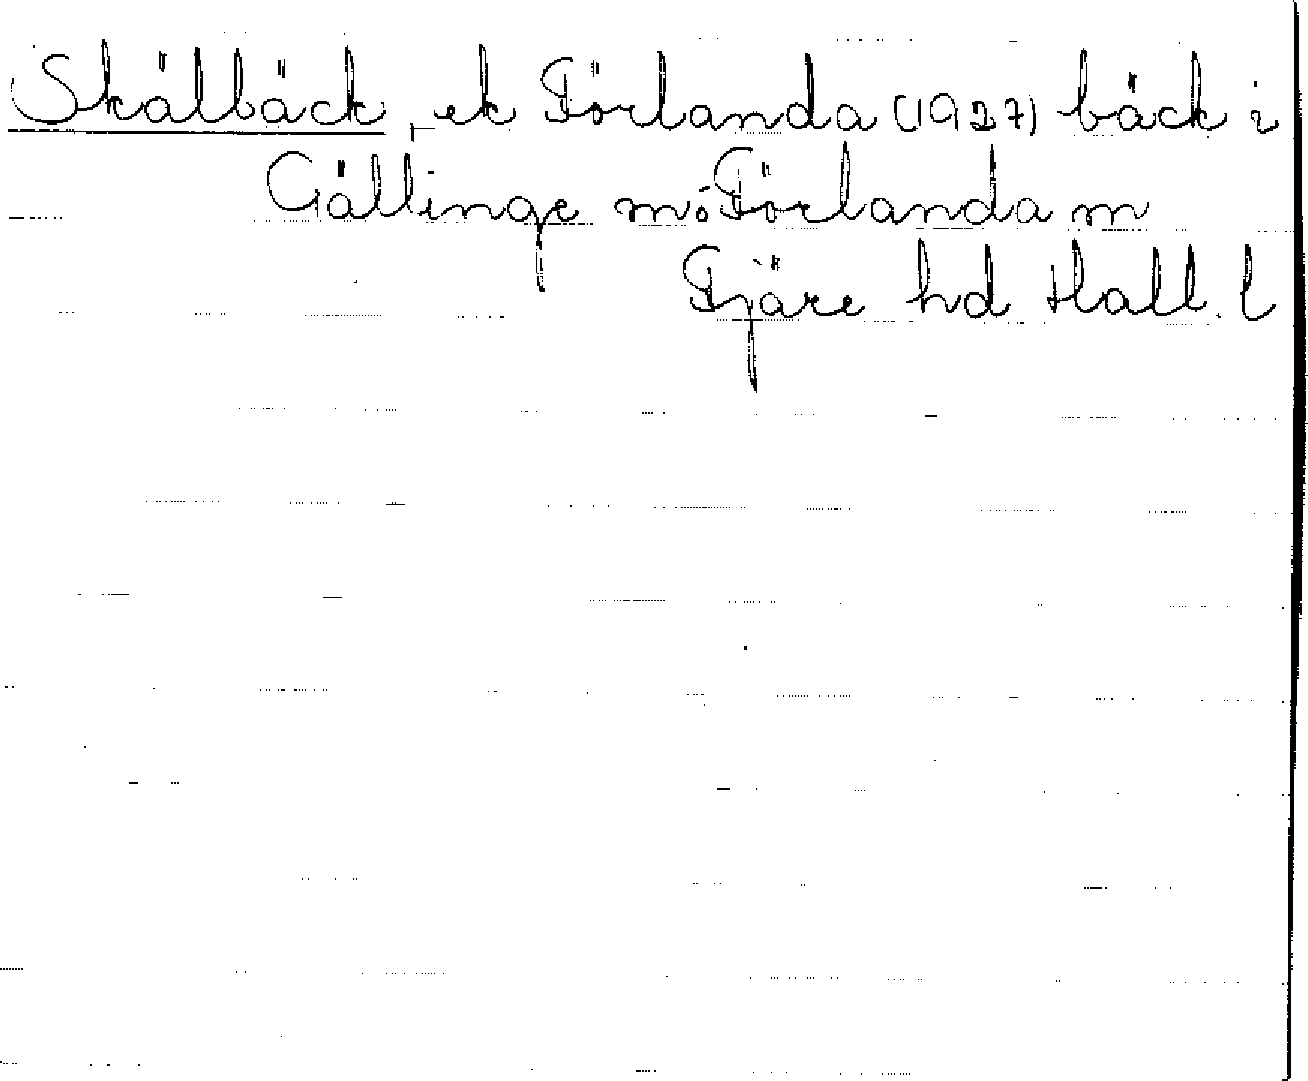 Skälbäck, ek Förlanda (1927) bäck i
Gällinge m ó Förlanda m
Fjäre hd Hall. l